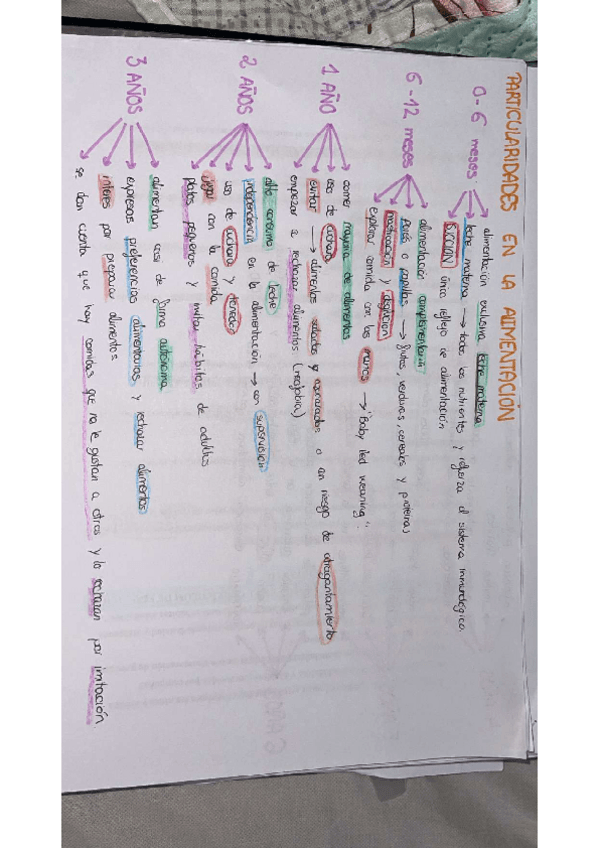 PARTICULARIDADES EN LA ALIMENTACIÓN
0-6 meses
alimentación exclusiva leche materna
leche materna → todos los nutrientes y refuerza el sistema inmunológico.
SUCCIÓN único reflejo de alimentación
6-12 meses
alimentación complementaria
purés o papillas → frutas, verduras, cereales y proteínas
masticación y deglución
explorar comida con las manos → "Baby led weaning"
1 AÑO
comer mayoría de alimentos
uso de cuchara
evitar → alimentos salados y azucarados o con riesgo de atragantamiento
empezar a rechazar alimentos (neofobia)
2 AÑOS
alto consumo de leche
independencia en la alimentación → con supervisión
uso de cuchara y tenedor
jugar con la comida
platos pequeños y imitar hábitos de adultos
3 AÑOS
alimentan casi de forma autónoma
expresas preferencias alimentarias y rechazar alimentos
interés por preparar alimentos
se dan cuenta que hay comidas que no le gustan a otros y lo rechazan por imitación.